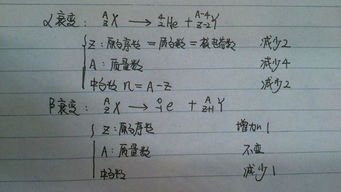 α衰变: ᴬ_Z X → ⁴₂He + ᴬ⁻⁴_Z-2 Y
Z:原子序数 = 质子数 = 核电荷数 减少2
A:质量数 减少4
中子数 n = A-Z 减少2
β衰变: ᴬ_Z X → ⁰₋₁e + ᴬ_Z+1 Y
Z:原子序数 增加1
A:质量数 不变
中子数 减少1